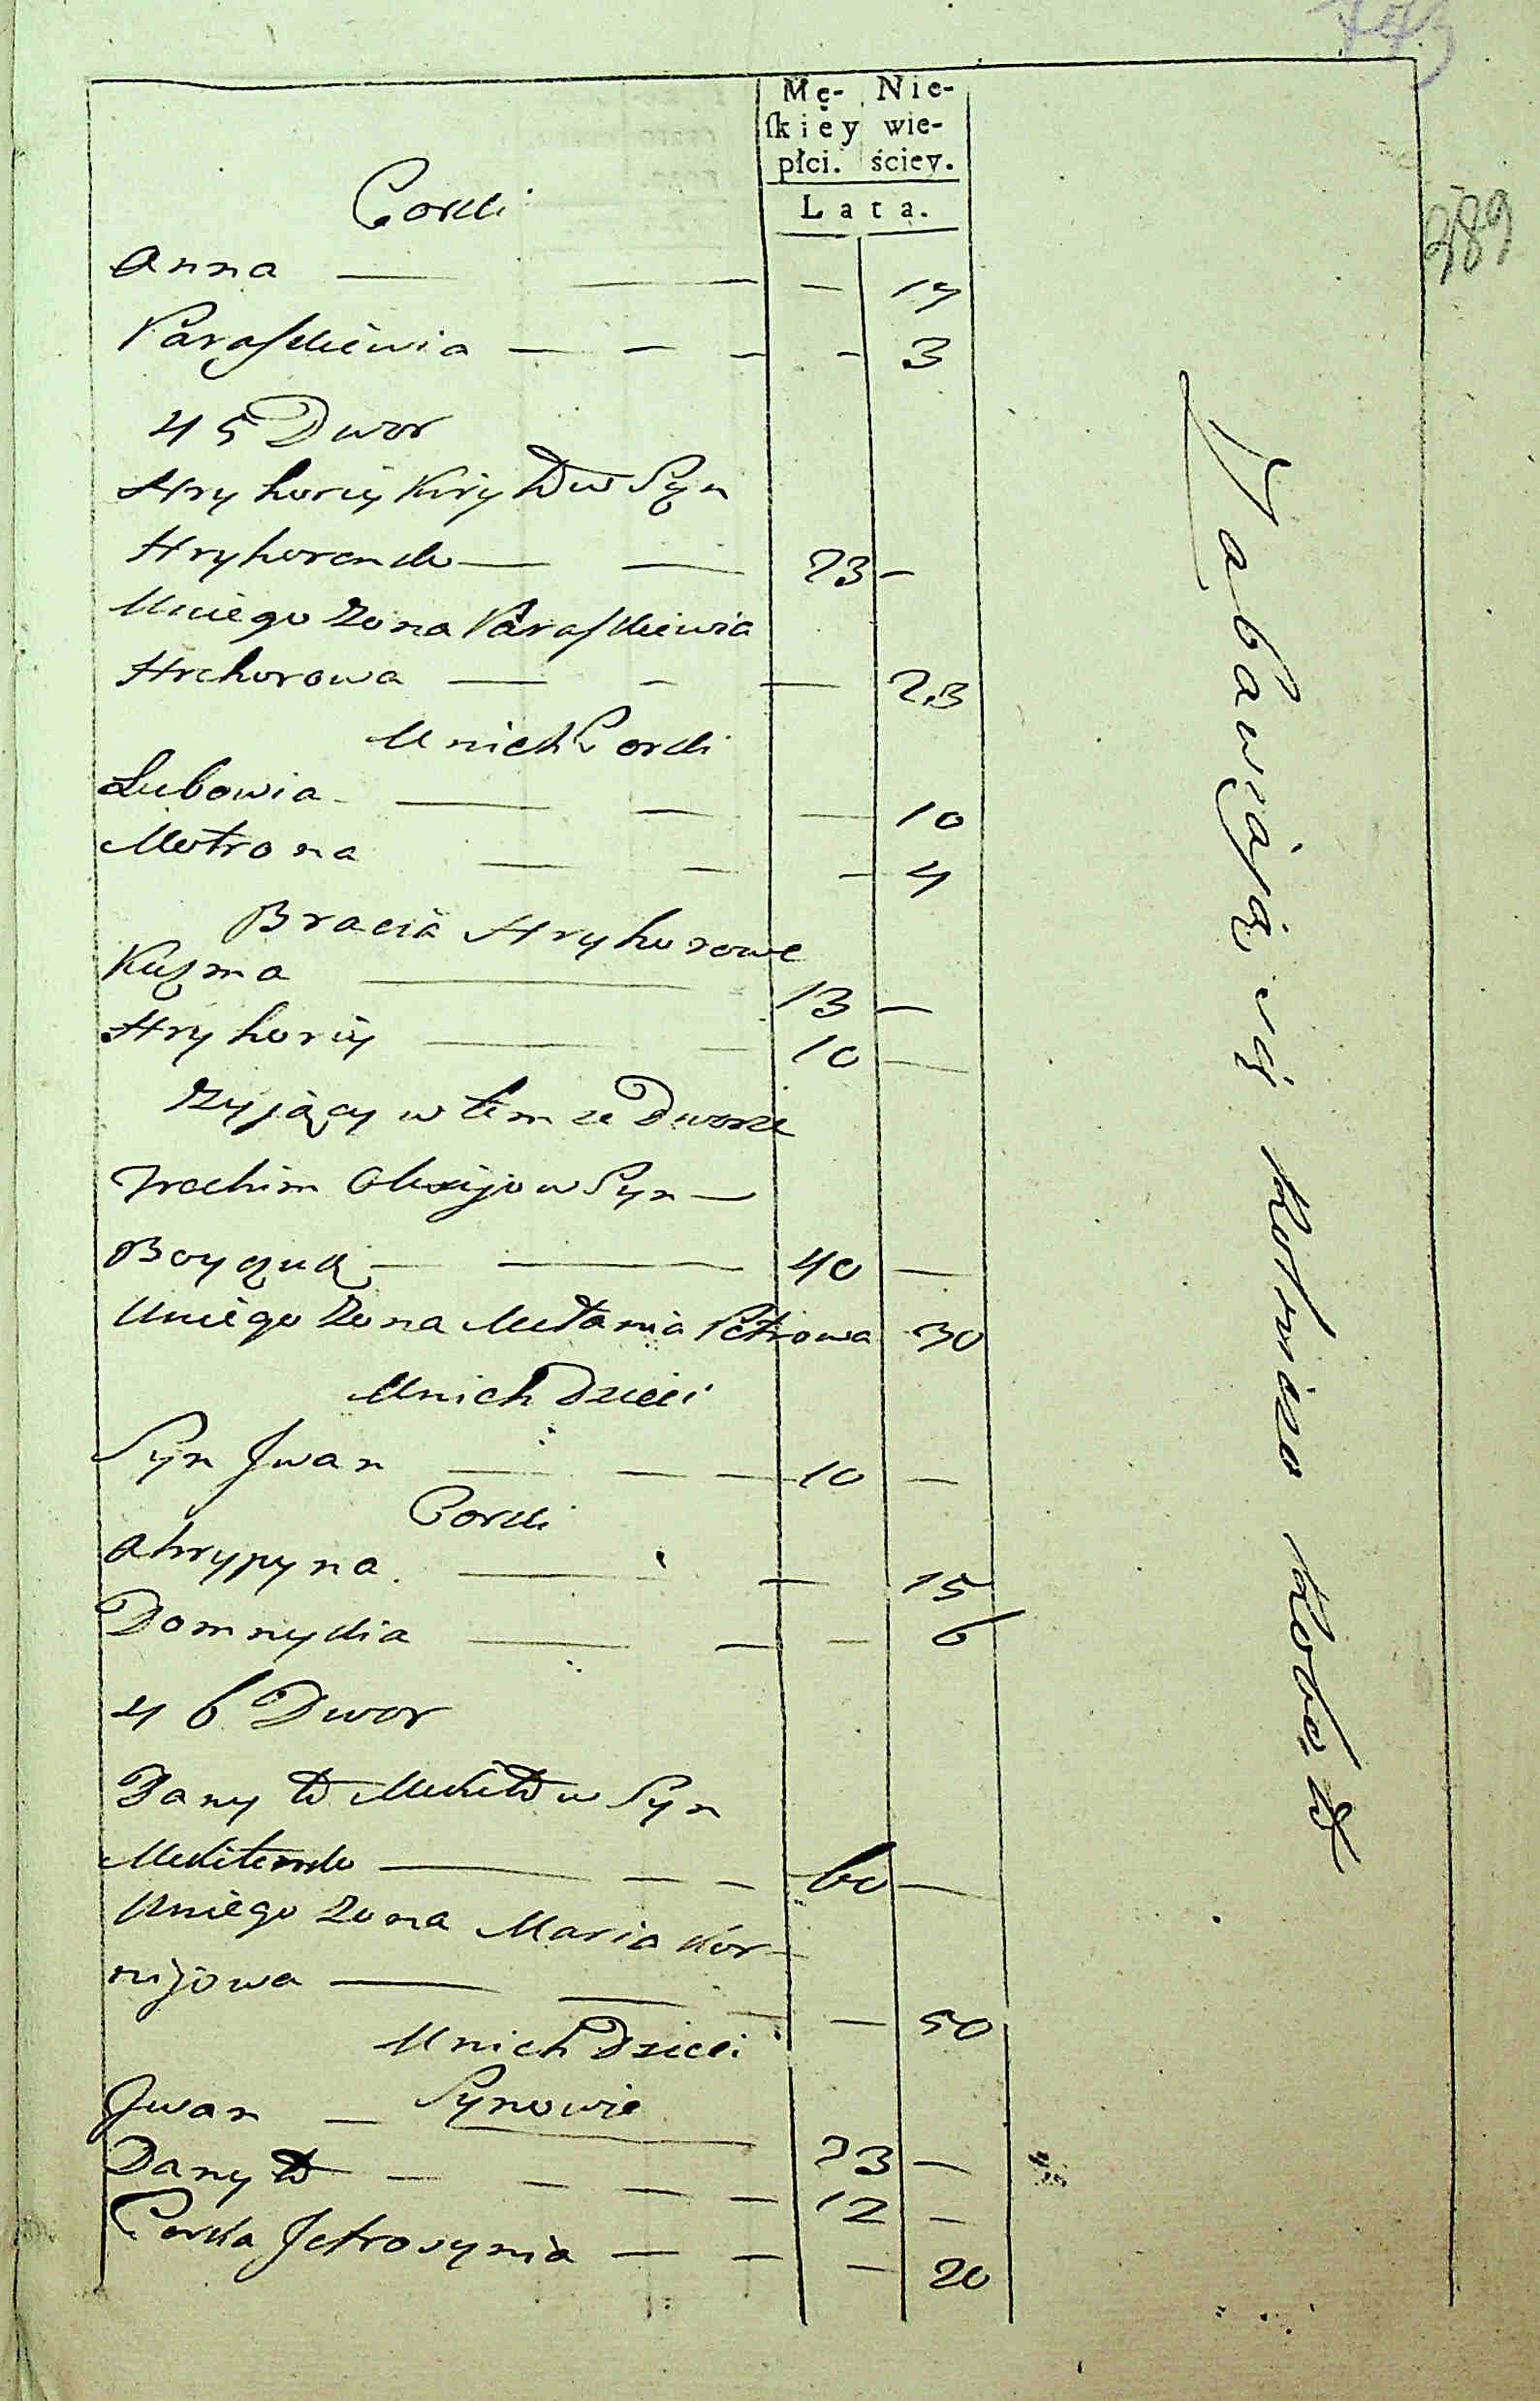 Mę- Nie-
ſkiey wie-
płci. ściey.
Lata.
Corki
Anna — — — 17
Paraskiewia — — — — 3
45 Dwor
Hryhoriy Kiryłow Syn
Hryhorenko — — 23 —
Uniego Zona Paraskiewia
Hrehorowa — — — 23
Unich Corki
Lubowia — — — 10
Motrona — — — 4
Bracia Hryhorowe
Kuzma — 13 —
Hryhoriy — — 10 —
Zyjący w tem ze Dworze
Jrochim Olexijow Syn —
Boyczuk — — 40 —
Uniego Zona Mełania Petrowa 30
Unich Dzieci
Syn Jwan — — — 10 —
Corki
Ahrypyna — — 15
Domnykia — — — 6
46 Dwor
Danyło Mikitow Syn
Mikitenko — — — 60 —
Uniego Zona Maria Kor-
nijowa — — — — 50
Unich Dzieci
Synowie
Jwan — — 23 —
Danyło — — — — 12 —
Corka Jefrosynia — — — 20
Zabawiają się rolnictwo robotą
389